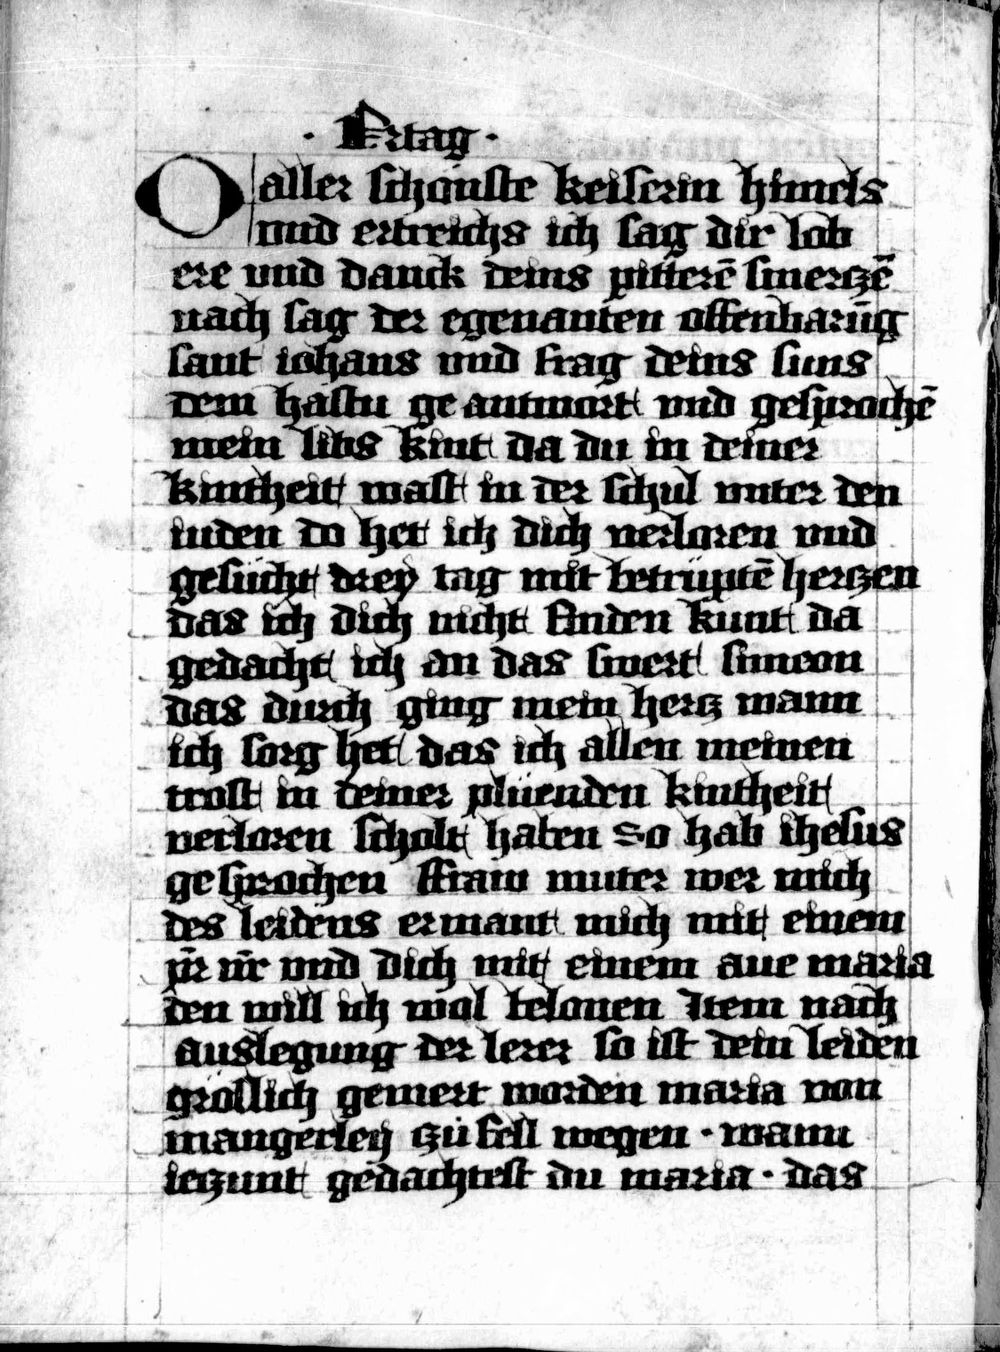 · Ertag ·
O aller schönste keiserin himels
vnd ertreichs ich sag dir lob
ere vnd danck deins pitterē smerczē
nach sag der egenanten offenbarūg
sant iohans vnd frag deins suns
dem hastu ge antwort vnd gesprochē
mein libs kint da du in deiner
kintheit wast in der schul vnter den
iuden do het ich dich verloren vnd
gesücht drey tag mit betrüptē herczen
das ich dich nicht finden kunt da
gedacht ich an das swert simeon
das durch ging mein hercz wann
ich sorg het das ich allen meinen
trost in deiner plüenden kintheit
verloren scholt haben So hab ihesus
gesprochen ffraw muter wer mich
des leidens ermant mich mit einem
pr̄ nr̄ vnd dich mit einem aue maria
den will ich wol belonen Item nach
auslegung der lerer so ist dein leiden
gröslich gemert worden maria von
mangerley czü fell wegen · wann
ieczunt gedachtest du maria · das